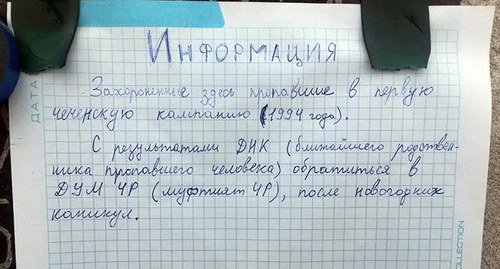 ИНФОРМАЦИЯ
ДАТА
Захороненные здесь пропавшие в первую
чеченскую кампанию (1994 года).
С результатами ДНК (ближайшего родствен-
ника пропавшего человека) обратиться в
ДУМ ЧР (муфтият ЧР), после новогодних
каникул.
COLLECTION